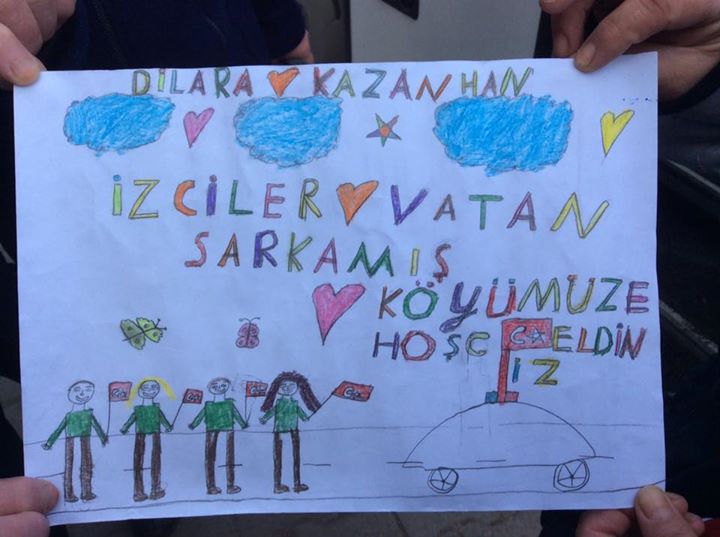 DİLARA KAZANHAN
İZCİLER VATAN
SARKAMIŞ
KÖYÜMÜZE
HOŞGELDİN
İZ